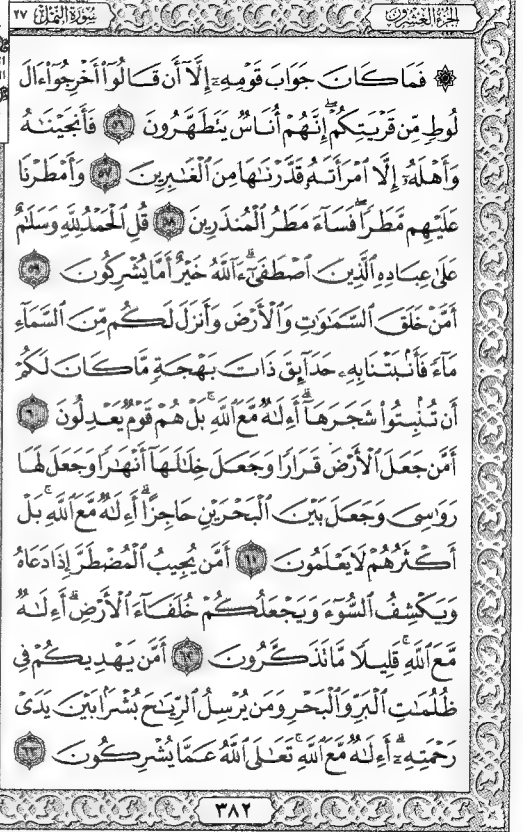 الجزء العشرون
سورة النمل ٢٧
۞ فَمَا كَانَ جَوَابَ قَوْمِهِۦٓ إِلَّآ أَن قَالُوٓا۟ أَخْرِجُوٓا۟ ءَالَ
لُوطٍ مِّن قَرْيَتِكُمْ ۖ إِنَّهُمْ أُنَاسٌ يَتَطَهَّرُونَ ٥٦ فَأَنجَيْنَـٰهُ
وَأَهْلَهُۥٓ إِلَّا ٱمْرَأَتَهُۥ قَدَّرْنَـٰهَا مِنَ ٱلْغَـٰبِرِينَ ٥٧ وَأَمْطَرْنَا
عَلَيْهِم مَّطَرًا ۖ فَسَآءَ مَطَرُ ٱلْمُنذَرِينَ ٥٨ قُلِ ٱلْحَمْدُ لِلَّهِ وَسَلَـٰمٌ
عَلَىٰ عِبَادِهِ ٱلَّذِينَ ٱصْطَفَىٰٓ ۗ ءَآللَّهُ خَيْرٌ أَمَّا يُشْرِكُونَ ٥٩
أَمَّنْ خَلَقَ ٱلسَّمَـٰوَٰتِ وَٱلْأَرْضَ وَأَنزَلَ لَكُم مِّنَ ٱلسَّمَآءِ
مَآءً فَأَنۢبَتْنَا بِهِۦ حَدَآئِقَ ذَاتَ بَهْجَةٍ مَّا كَانَ لَكُمْ
أَن تُنۢبِتُوا۟ شَجَرَهَآ ۗ أَءِلَـٰهٌ مَّعَ ٱللَّهِ ۚ بَلْ هُمْ قَوْمٌ يَعْدِلُونَ ٦٠
أَمَّن جَعَلَ ٱلْأَرْضَ قَرَارًا وَجَعَلَ خِلَـٰلَهَآ أَنْهَـٰرًا وَجَعَلَ لَهَا
رَوَٰسِىَ وَجَعَلَ بَيْنَ ٱلْبَحْرَيْنِ حَاجِزًا ۗ أَءِلَـٰهٌ مَّعَ ٱللَّهِ ۚ بَلْ
أَكْثَرُهُمْ لَا يَعْلَمُونَ ٦١ أَمَّن يُجِيبُ ٱلْمُضْطَرَّ إِذَا دَعَاهُ
وَيَكْشِفُ ٱلسُّوٓءَ وَيَجْعَلُكُمْ خُلَفَآءَ ٱلْأَرْضِ ۗ أَءِلَـٰهٌ
مَّعَ ٱللَّهِ ۚ قَلِيلًا مَّا تَذَكَّرُونَ ٦٢ أَمَّن يَهْدِيكُمْ فِى
ظُلُمَـٰتِ ٱلْبَرِّ وَٱلْبَحْرِ وَمَن يُرْسِلُ ٱلرِّيَـٰحَ بُشْرًۢا بَيْنَ يَدَىْ
رَحْمَتِهِۦٓ ۗ أَءِلَـٰهٌ مَّعَ ٱللَّهِ ۚ تَعَـٰلَى ٱللَّهُ عَمَّا يُشْرِكُونَ ٦٣
٣٨٢